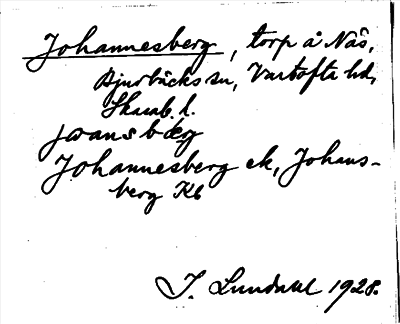 Johannesberg, torp å Näs,
Djurbäcks sn, Vartofta hd,
Skarab. l.
jwansbærg
Johannesberg ek, Johans-
berg Kb
I. Lundahl 1928.